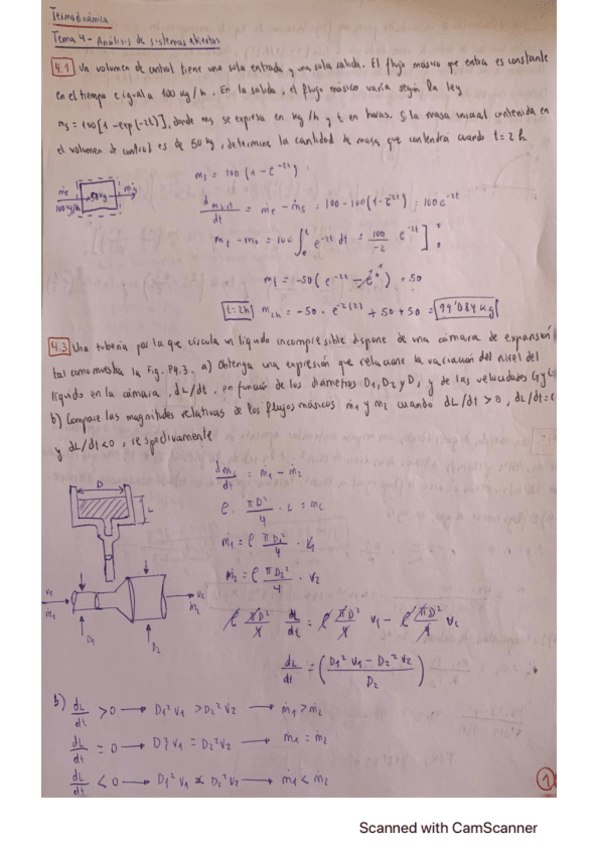 Termodinámica
Tema 4 - Análisis de sistemas abiertos
4.1 Un volumen de control tiene una sola entrada y una sola salida. El flujo másico que entra es constante
en el tiempo e igual a 100 kg/h. En la salida, el flujo másico varía según la ley
ms = 100[1-exp(-2t)], donde ms se expresa en kg/h y t en horas. Si la masa inicial contenida en
el volumen de control es de 50 kg, determine la cantidad de masa que contendrá cuando t = 2 h
ṁs = 100 (1-e^-2t)
ṁe 100 kg/h 50 kg ṁs
dt = ṁe - ṁs = 100 - 100(1-e^-2t) = 100e^-2t
mt - m0 = 100 ∫ e^-2t dt = 100/-2 e^-2t ]
mt = -50 (e^-2t - e^0) + 50
t=2h m2h = -50 · e^-2(2) + 50 + 50 = 99'084 kg
4.3 Una tubería por la que circula un líquido incompresible dispone de una cámara de expansión
tal como muestra la Fig. P4.3. a) Obtenga una expresión que relacione la variación del nivel del
líquido en la cámara, dL/dt, en función de los diámetros D1, D2 y D, y de las velocidades
b) Compare las magnitudes relativas de los flujos másicos ṁ1 y ṁ2 cuando dL/dt > 0, dL/dt =
y dL/dt < 0, respectivamente
dt = ṁ1 - ṁ2
D
L
ρ · πD²/4 · L = mc
ṁ1 = ρ πD2²/4 · V1
ṁ2 = ρ πD2²/4 · V2
v2
ṁ2
v1
ṁ1
D1
D2
ρ πD²/4 dL/dt = ρ πD²/4 v1 - ρ πD²/4 v2
dL/dt = (D1² v1 - D2² v2 / D2)
b) dL/dt > 0 → D1² v1 > D2² v2 → ṁ1 > ṁ2
dL/dt = 0 → D1² v1 = D2² v2 → ṁ1 = ṁ2
dL/dt < 0 → D1² v1 < D2² v2 → ṁ1 < ṁ2
1
Scanned with CamScanner